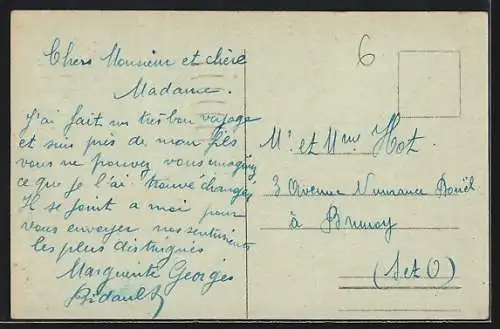 Chers Monsieur et chère
Madame.
J'ai fait un très bon voyage
et suis près de mon fils
vous ne pouvez vous imaginez
ce que je l'ai trouvé changé
Il se joint a moi pour
vous envoyer nos sentiments
les plus distingués
Marguerite Georges
Bidault
6
Mr et Mme Hot
3 Avenue
à Brunoy
(S et O)